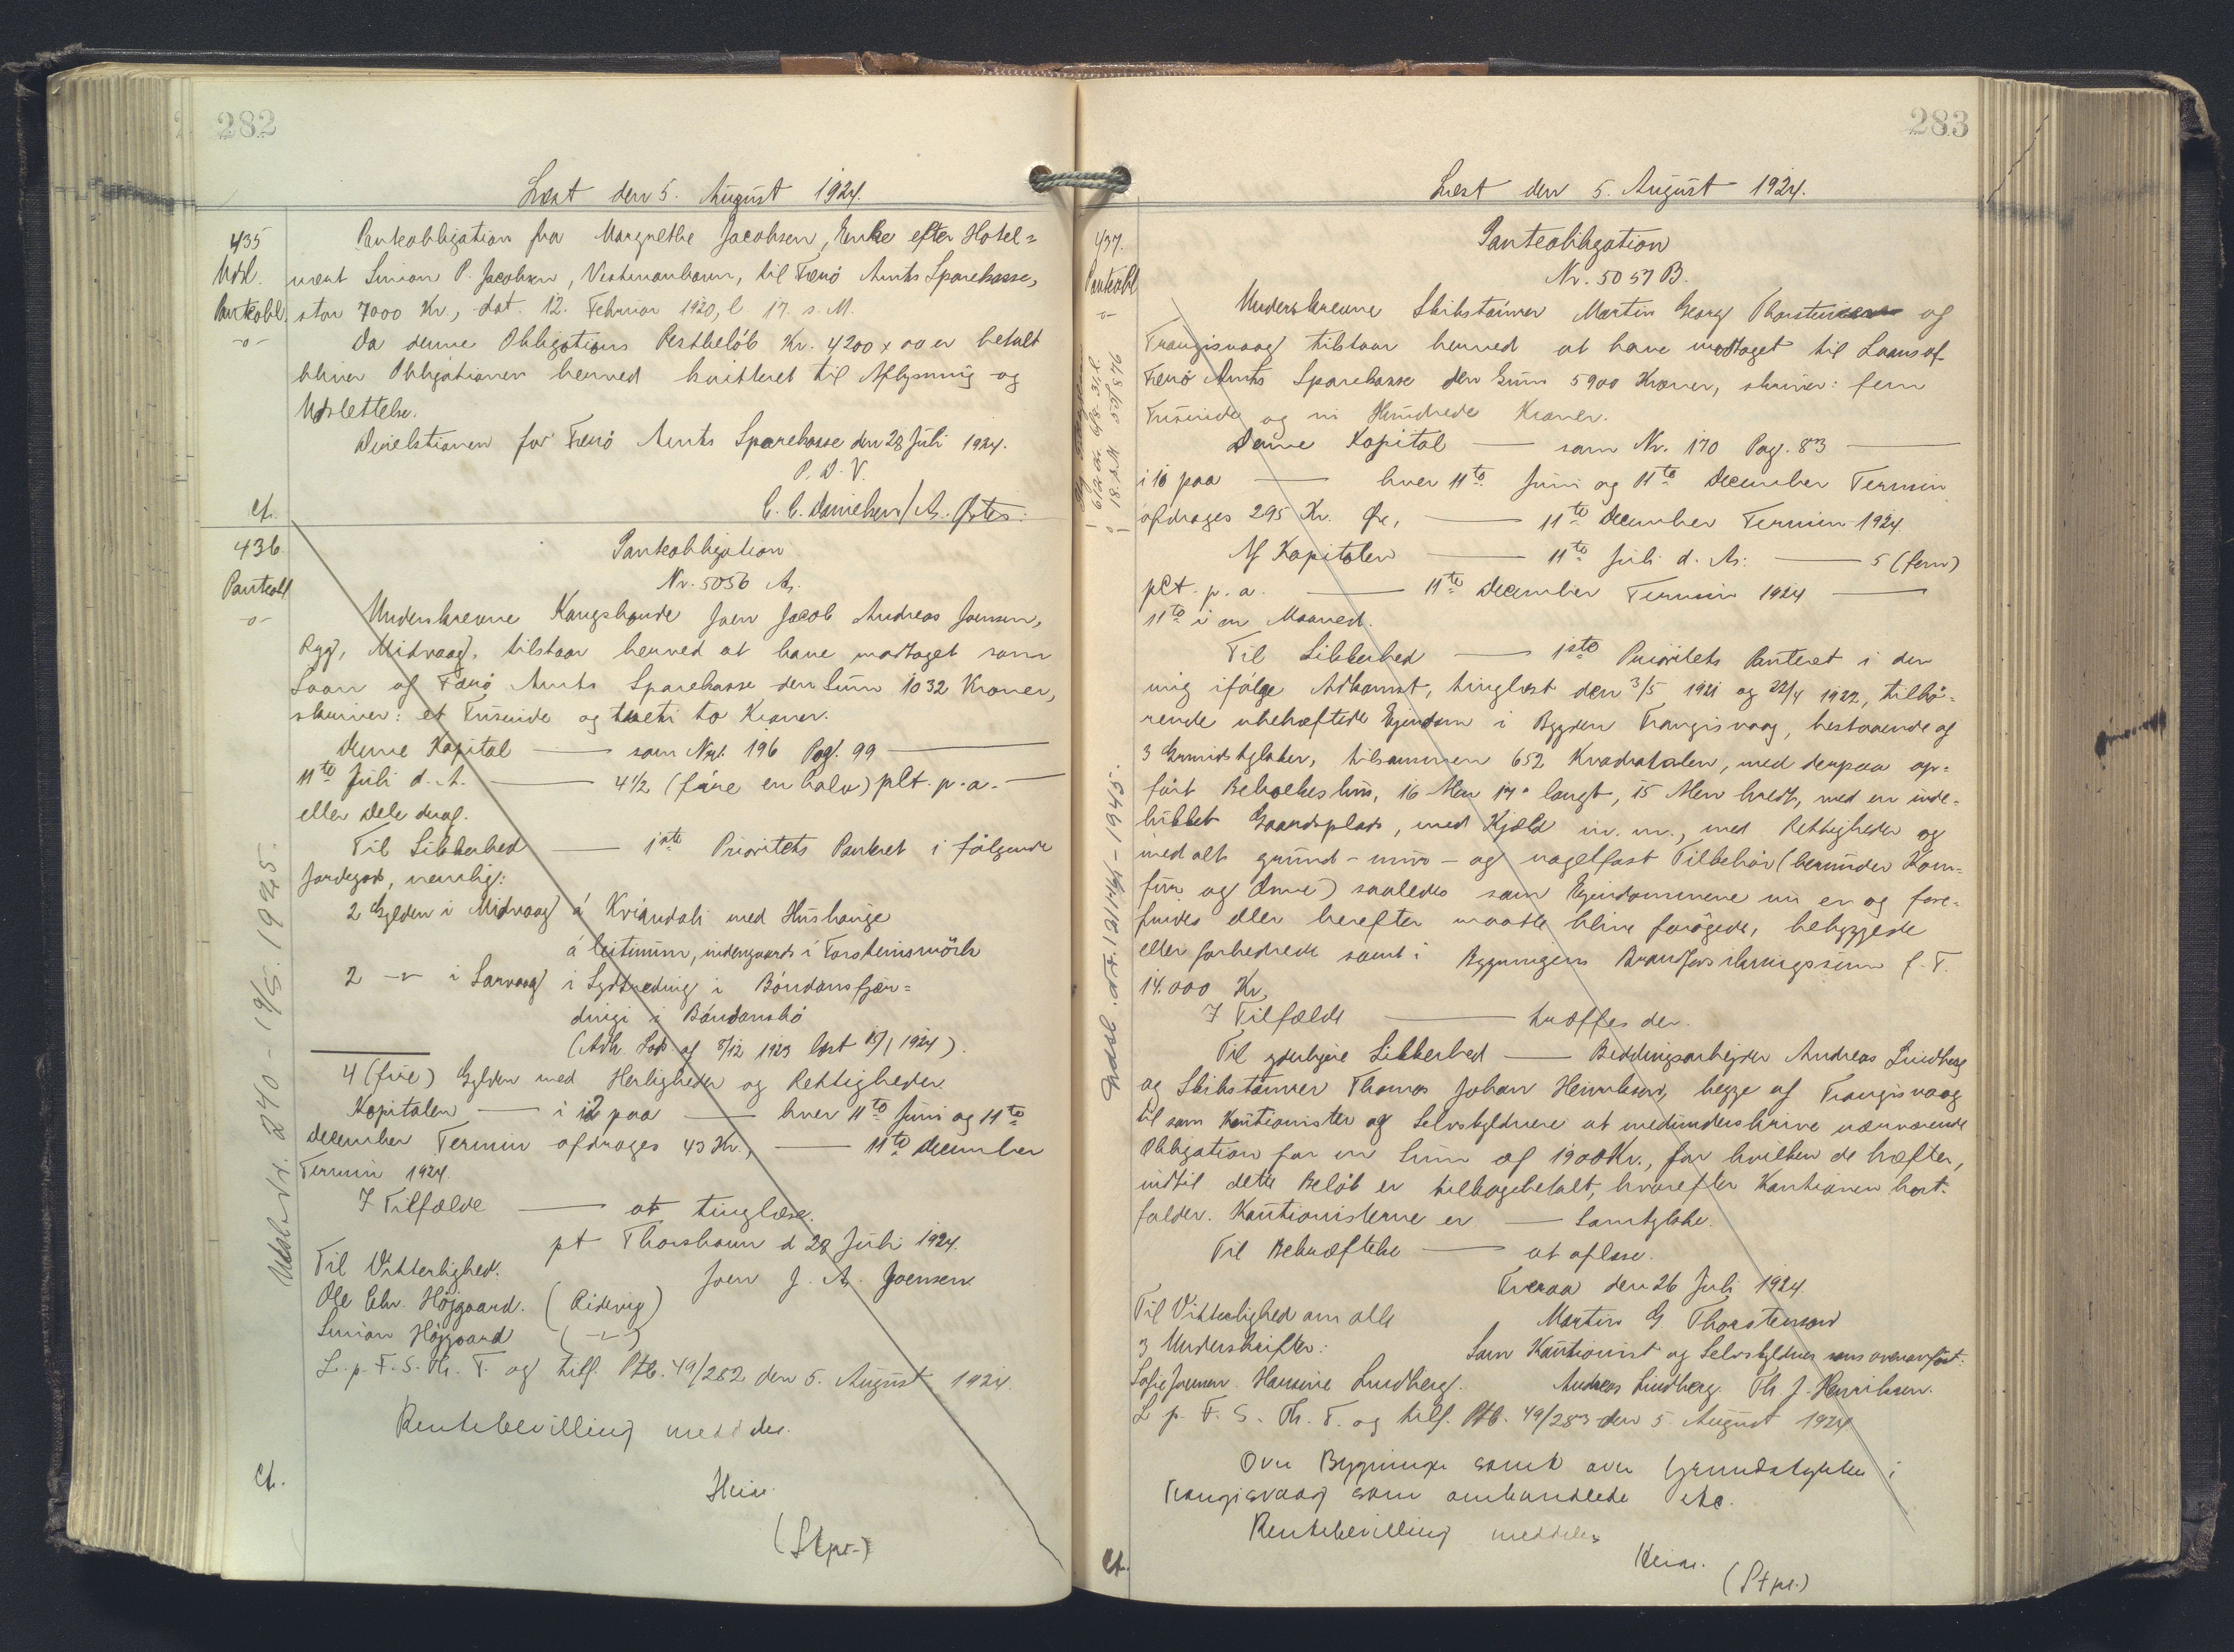 282
Læst den 5. August 1924.
435
Udsl.
Pantobl.
-o-
Panteobligation fra Margrethe Jacobsen, Enke efter Hotel=
vært Simion P. Jacobsen, Vestmanhavn, til Færö Amts Sparekasse,
stor 7000 Kr., dat. 12. Februar 1920, l 17. s. M.
Da denne Obligations Restbelöb Kr. 4200 x 00 er betalt
bliver Obligationen herved kvitteret til Aflysning og
Udslettelse.
Direktionen for Færö Amts Sparekasse den 28 Juli 1924.
P. D. V.
C. C. Danielsen / A.
Ct.
436.
Panteobl
-o-
Panteobligation
Nr. 5056 A.
Underskrevne Kongsbonde Joen Jacob Andreas Joensen,
Ryg, Midvaag, tilstaar herved at have modtaget som
Laan af Færö Amts Sparekasse den Sum 1032 Kroner,
skriver: et Tusinde og treti to Kroner.
Denne Kapital — som Nr. 196 Pag. 99 —
11te Juli d. A. — 4 1/2 (fire en halv) pCt. p. a. —
eller Dele deraf.
Til Sikkerhed — 1ste Prioritets Panteret i fölgende
Jordegods, nemlig:
2 Gylden i Midvaag á Kviandali med Húshauge
á leitinum, indengaards i Torsteinsmörk
2 -"- i Sörvaag i Sydtreding i Bóndansfjer=
dingi i Bóndansbö
(Adk. Sk. af 8/12 1923 læst 1924).
4 (fire) Gylden med Herligheder og Rettigheder.
Kapitalen — i 12 paa — hver 11te Juni og 11te
December Termin afdrages 43 Kr., — 11te December
Termin 1924.
I Tilfælde — at tinglæse.
pt Thorshavn d 28 Juli 1924.
Til Vitterlighed.
Joen J. A. Joensen.
Ole Chr. Höjgaard. (Ridevig)
Simion Höjgaard (-"-)
L. p. F. S. Th. T. og tilf. Ptb. 49/282 den 5. August 1924.
Rentebevilling meddeles.
Heise.
(Stpr.)
Ct.
Udsl. Nr. 240 - 19/5. 1925.
283
Læst den 5. August 1924.
437.
Panteobl
-o-
Panteobligation
Nr. 5057 B.
Underskrevne Skibstömrer Martin Georg Thorsteinsen og
Trangisvaag tilstaar herved at have modtaget til Laans af
Færö Amts Sparekasse den Sum 5900 Kroner, skriver: fem
Tusinde og ni Hundrede Kroner.
Denne Kapital — som Nr. 170 Pag. 83 —
i 10 paa — hver 11te Juni og 11te December Termin
afdrages 295 Kr. Öre, — 11te December Termin 1924.
Af Kapitalen — 11te Juli d. A: — 5 (fem)
pCt. p. a. — 11te December Termin 1924 —
11te i en Maaned.
Til Sikkerhed — 1ste Prioritets Panteret i den
mig ifölge Adkomst, tinglæst den 3/5 1921 og 22/4 1922, tilhö=
rende ubehæftede Ejendom i Bygden Trangisvaag, bestaaende af
3 Grundstykker, tilsammen 652 Kvadratalen, med derpaa op=
fört Beboelseshus, 16 Alen 17" langt, 15 Alen bredt, med en inde=
lukket Gaardsplads, med Kjæld m. m., med Rettigheder og
med alt grund- mur- og nagelfast Tilbehör (herunder Kom=
fur og Ovne) saaledes som Ejendommene nu er og fore=
findes eller herefter maatte blive forögede, bebyggede
eller forbedrede samt i Bygningens Brandforsikringssum p. T.
14.000 Kr.
I Tilfælde — træffes der.
Til yderligere Sikkerhed — Beddingsarbejder Andreas Lindberg
og Skibstömrer Thomas Johan Henriksen, begge af Trangisvaag
til som Kautionister og Selvskyldnere at medunderskrive nærværende
Obligation for en Sum af 1900 Kr., for hvilken de hæfter,
indtil dette Belöb er tilbagebetalt, hvorefter Kautionen bort-
falder. Kautionisterne er — Samtykke.
Til Bekræftelse — at aflæse.
Tveraa den 26 Juli 1924.
Til Vitterlighed om alle
3 Underskrifter:
Martin G Thorstensen
Som Kautionist og Selvskyldner som ovenanfört.
Sofie Joensen. Hansine Lindberg.
Andreas Lindberg. Th. J. Henriksen.
L p. F. S. Th. T. og tilf. Ptb. 49/283 den 5. August 1924
Over Bygninger samt over Grundstykker i
Trangisvaag som omhandlede etc.
Rentebevilling meddeles
Heise.
(Stpr.)
Ct.
Udsl. Nr. 121 - 1945.